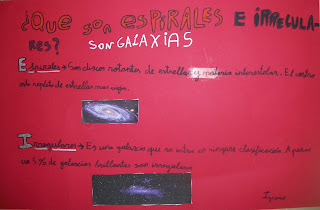 ¿QUE SON ESPIRALES E IRREGULA-
RES?
SON GALAXIAS
Espirales → Son discos rotantes de estrellas y materia interestelar. El centro
está repleto de estrellas más viejas.
Irregulares → Es una galaxia que no entra en ninguna clasificación. Apenas
un 3% de galaxias brillantes son irregulares
Ignacio